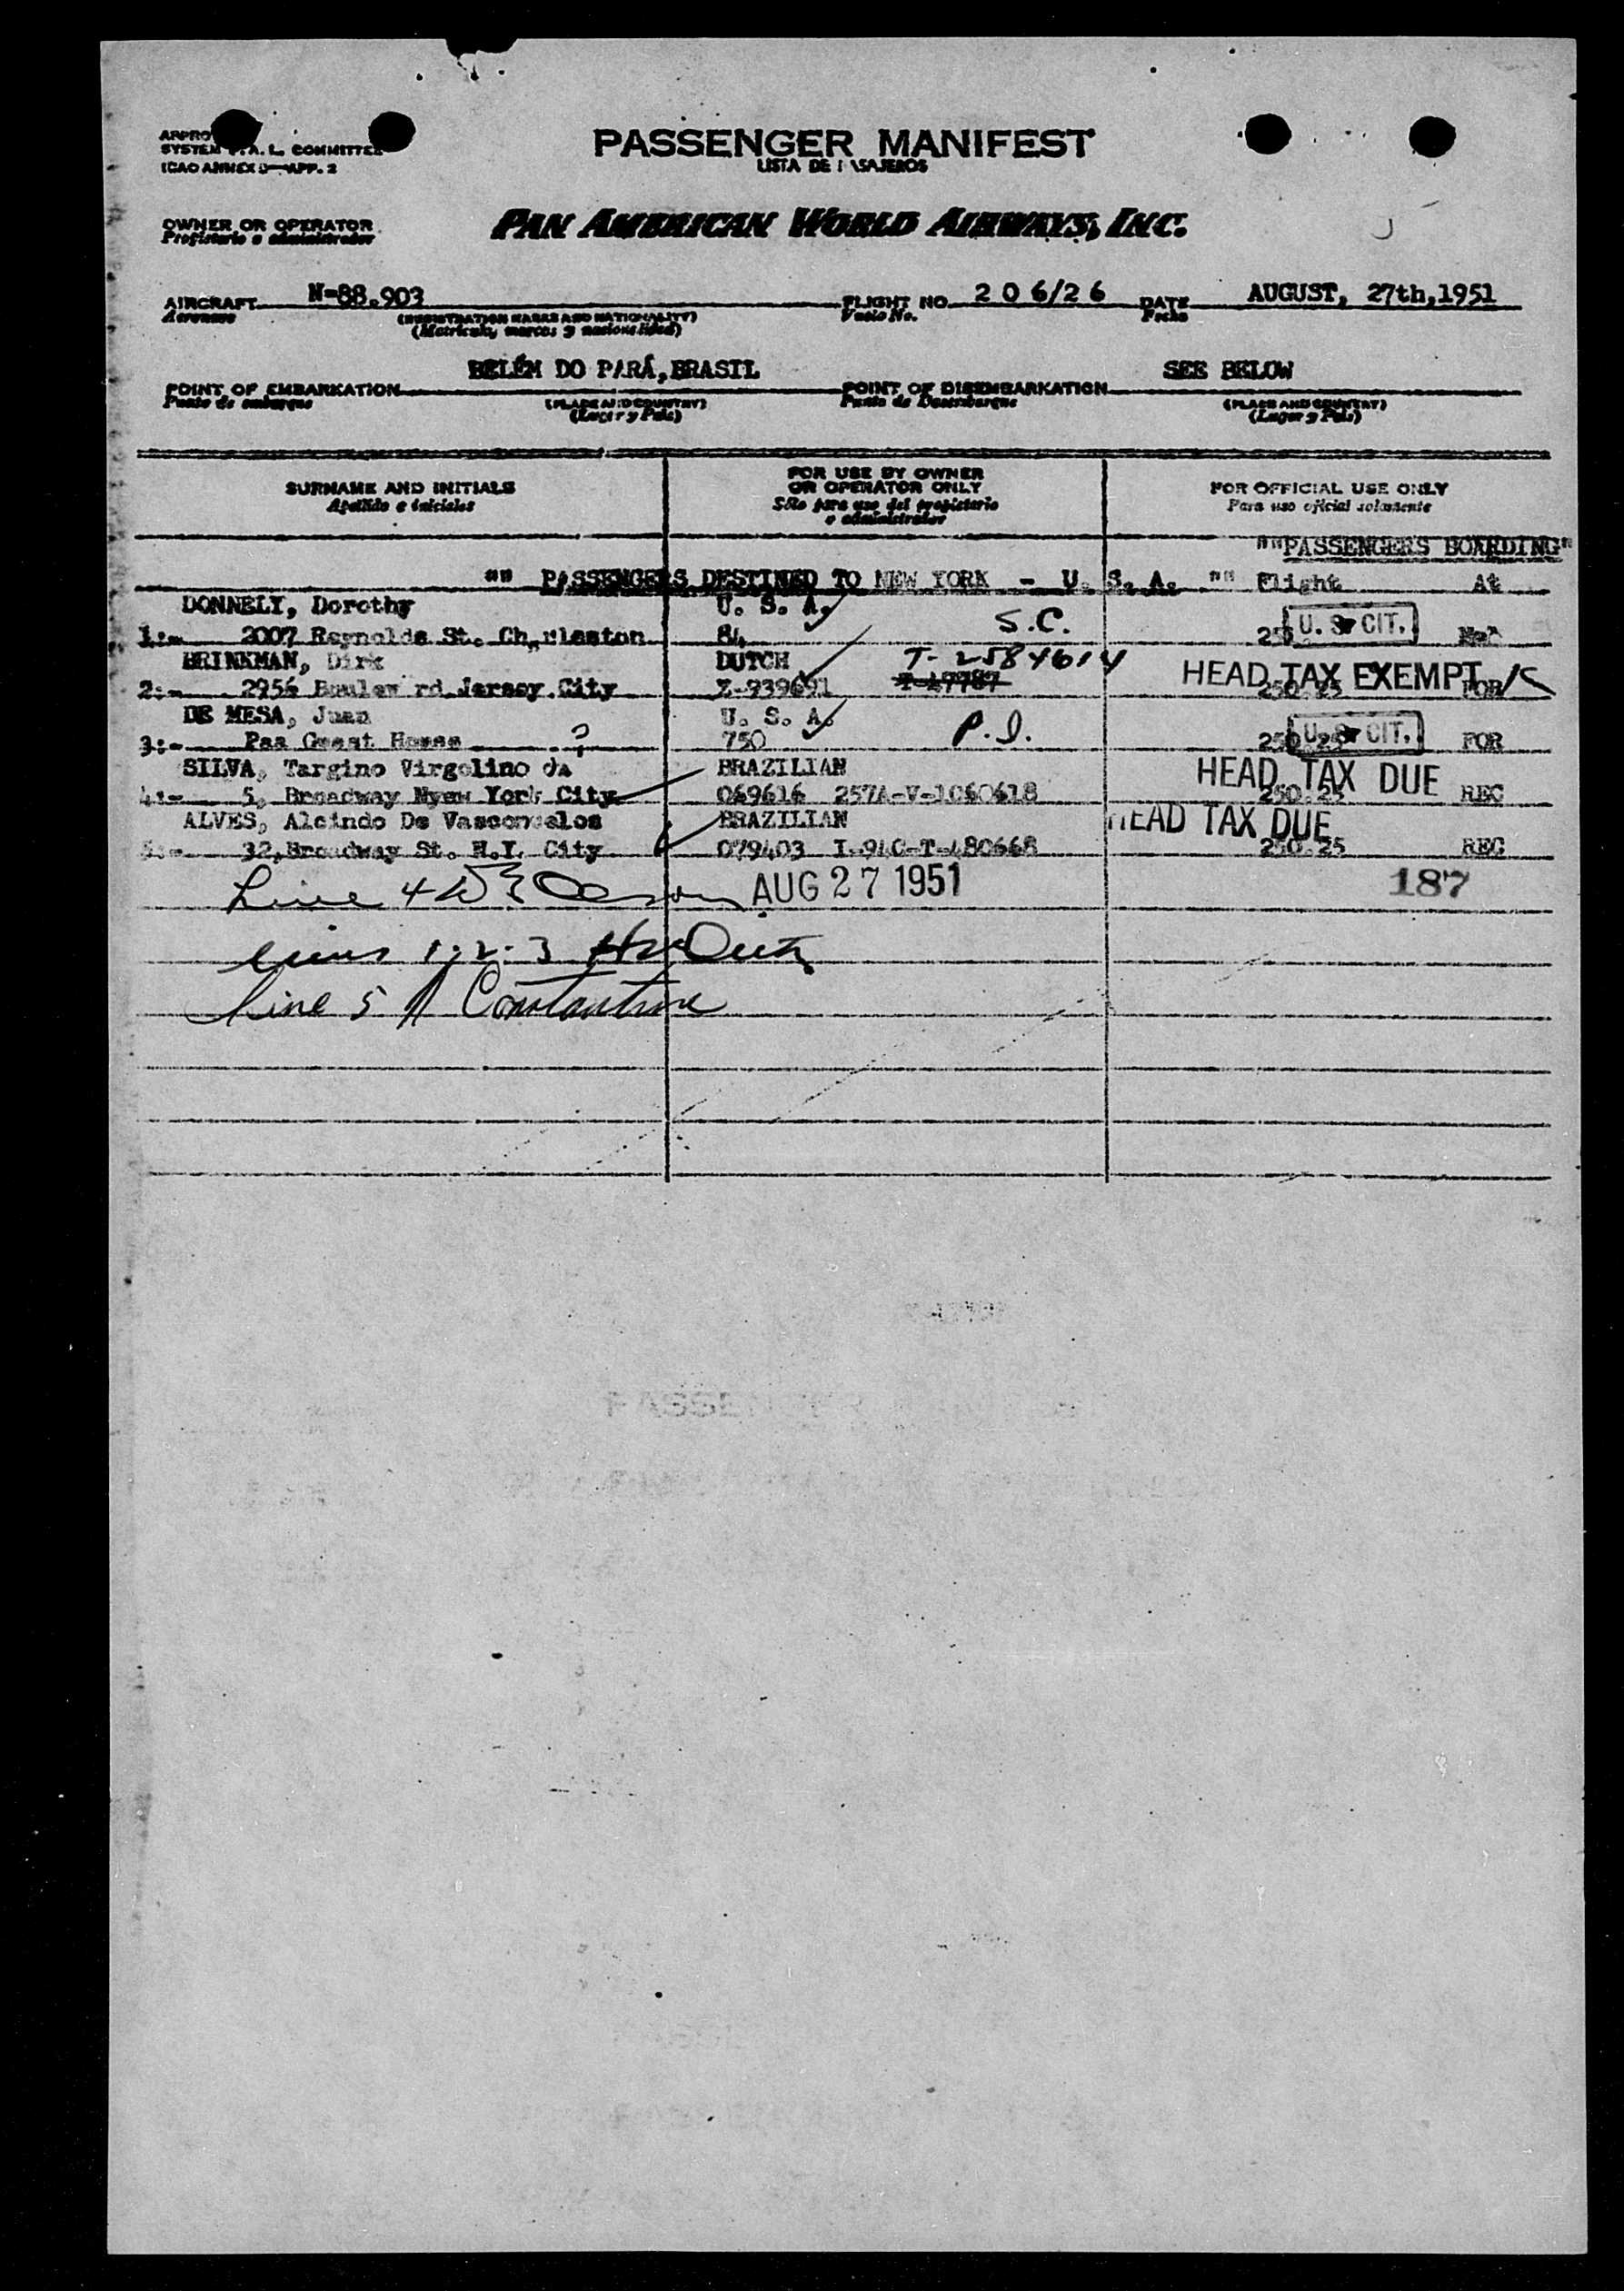 PASSENGER MANIFEST
SYSTEM COMMITTEE
ICAO ANNEX 9 APP. 2
LISTA DE PASAJEROS
OWNER OR OPERATOR
Propietario o administrador
PAN AMERICAN WORLD AIRWAYS, INC.
AIRCRAFT N-88.903 FLIGHT NO. 2 0 6/2 6 DATE AUGUST, 27th,1951
Aeronave (REGISTRATION MARKS AND NATIONALITY) Vuelo No. Fecha
(Matricula, marcas y nacionalidad)
POINT OF EMBARKATION BELÉM DO PARÁ, BRASIL POINT OF DISEMBARKATION SEE BELOW
Punto de embarque (PLACE AND COUNTRY) Punto de Desembarque (PLACE AND COUNTRY)
(Lugar y País) (Lugar y País)
SURNAME AND INITIALS FOR USE BY OWNER OR OPERATOR ONLY FOR OFFICIAL USE ONLY
Apellido e iniciales Sólo para uso del propietario o administrador Para uso oficial solamente
""PASSENGERS BOARDING"
"" PASSENGERS DESTINED TO NEW YORK - U. S. A. "" Flight At
DONNELY, Dorothy U. S. A. S.C. U. S. CIT.
1:- 2007 Reynolds St. Charleston 84
BRINKMAN, Dirk DUTCH T-2584614 HEAD TAX EXEMPT
2:- 2956 Boulevard Jersey City Z-939691 250.25 FOR
DE MESA, Juan U. S. A. P.I. U. S. CIT.
3:- Paa Guest House ? 750 250.25 FOR
SILVA, Targino Virgolino da BRAZILIAN HEAD TAX DUE
4:- 5, Broadway Nyew York City 069616 257A-V-1060618 250.25 REC
ALVES, Alcindo De Vasconcelos BRAZILIAN HEAD TAX DUE
5:- 32, Broadway St. N.Y. City 079403 I-94C-T-480668 250.25 REC
Line 4 AUG 27 1951 187
Lines 1.2.3
Line 5 A Constantine